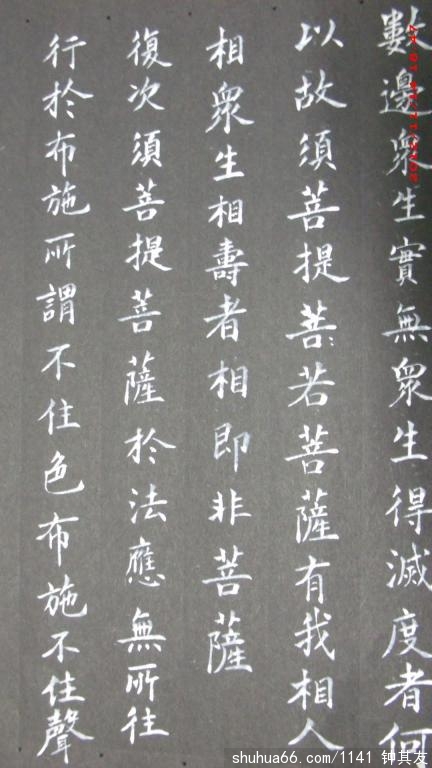 數邊眾生實無眾生得滅度者何
以故須菩提菩若菩薩有我相人
相眾生相壽者相即非菩薩
復次須菩提菩薩於法應無所往
行於布施所謂不住色布施不住聲
shuhua66.com/1141 钟其友